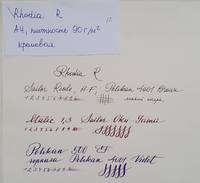 Rhodia R
А4, плотность 90 г/м²
кремовая
Rhodia R
Sailor Realo, H-F, Pelikan 4001 Brown
1 2 3 4 5 6 7 8 9
Italic 1,3 Sailor Oku-Yama
1 2 3 4 5 6 7 8 9
Pelikan 500 EF
чернила Pelikan 4001 Violet
1 2 3 4 5 6 7 8 9